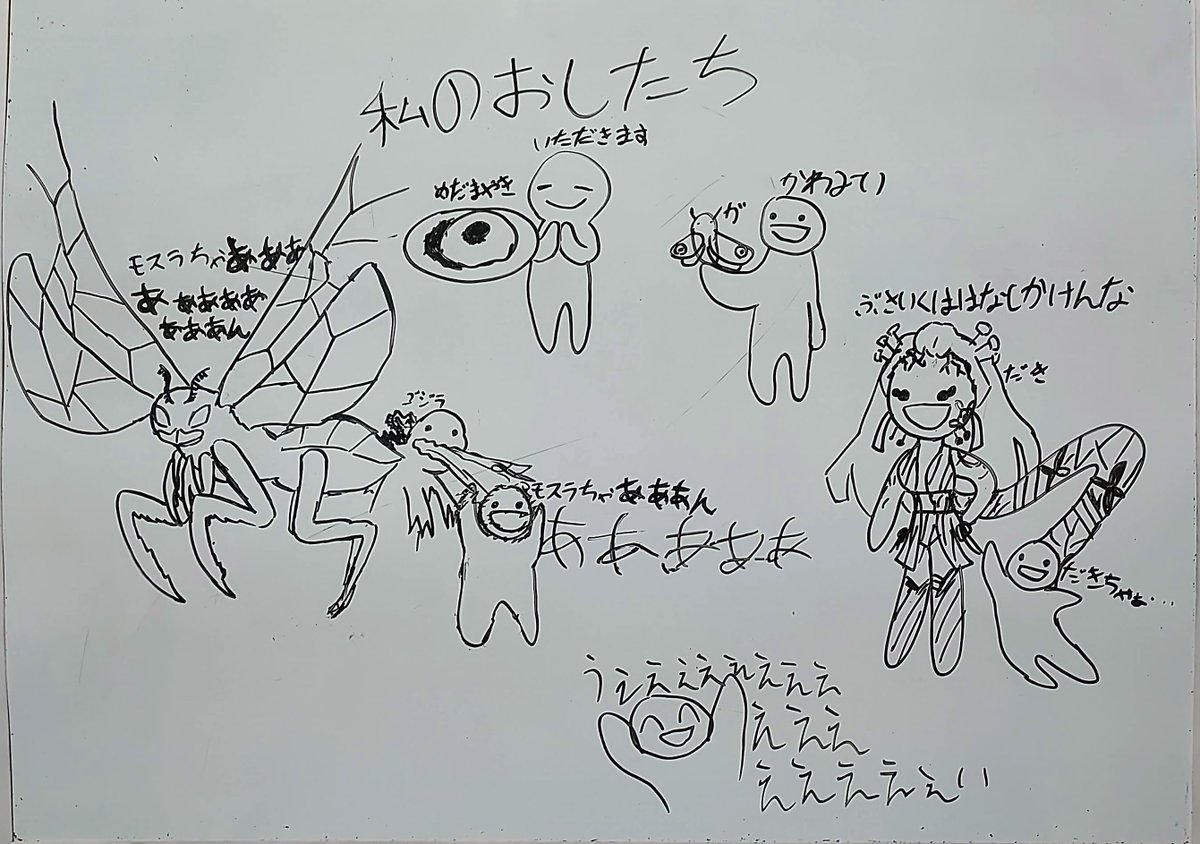 私のおしたち
いただきます
めだまやき
が
かわよてい
モスラちゃあああ
あ ああああ
あああん
ぶさいくははなしかけんな
だき
ゴジラ
モスラちゃあああん
あああああ
だきちゃぁ…
うぇえぇえぇえええ
ええええ
えええええい